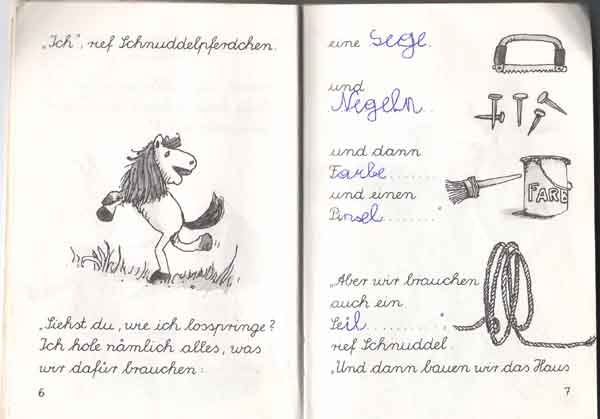 „Ich", rief Schnuddelpferdchen.
„Siehst du, wie ich losspringe?
Ich hole nämlich alles, was
wir dafür brauchen:
6
eine Sege.
und
Negeln..
und dann
Farbe........
und einen
Pinsel........
FARB
„Aber wir brauchen
auch ein
Seil........
rief Schnuddel.
„Und dann bauen wir das Haus
7